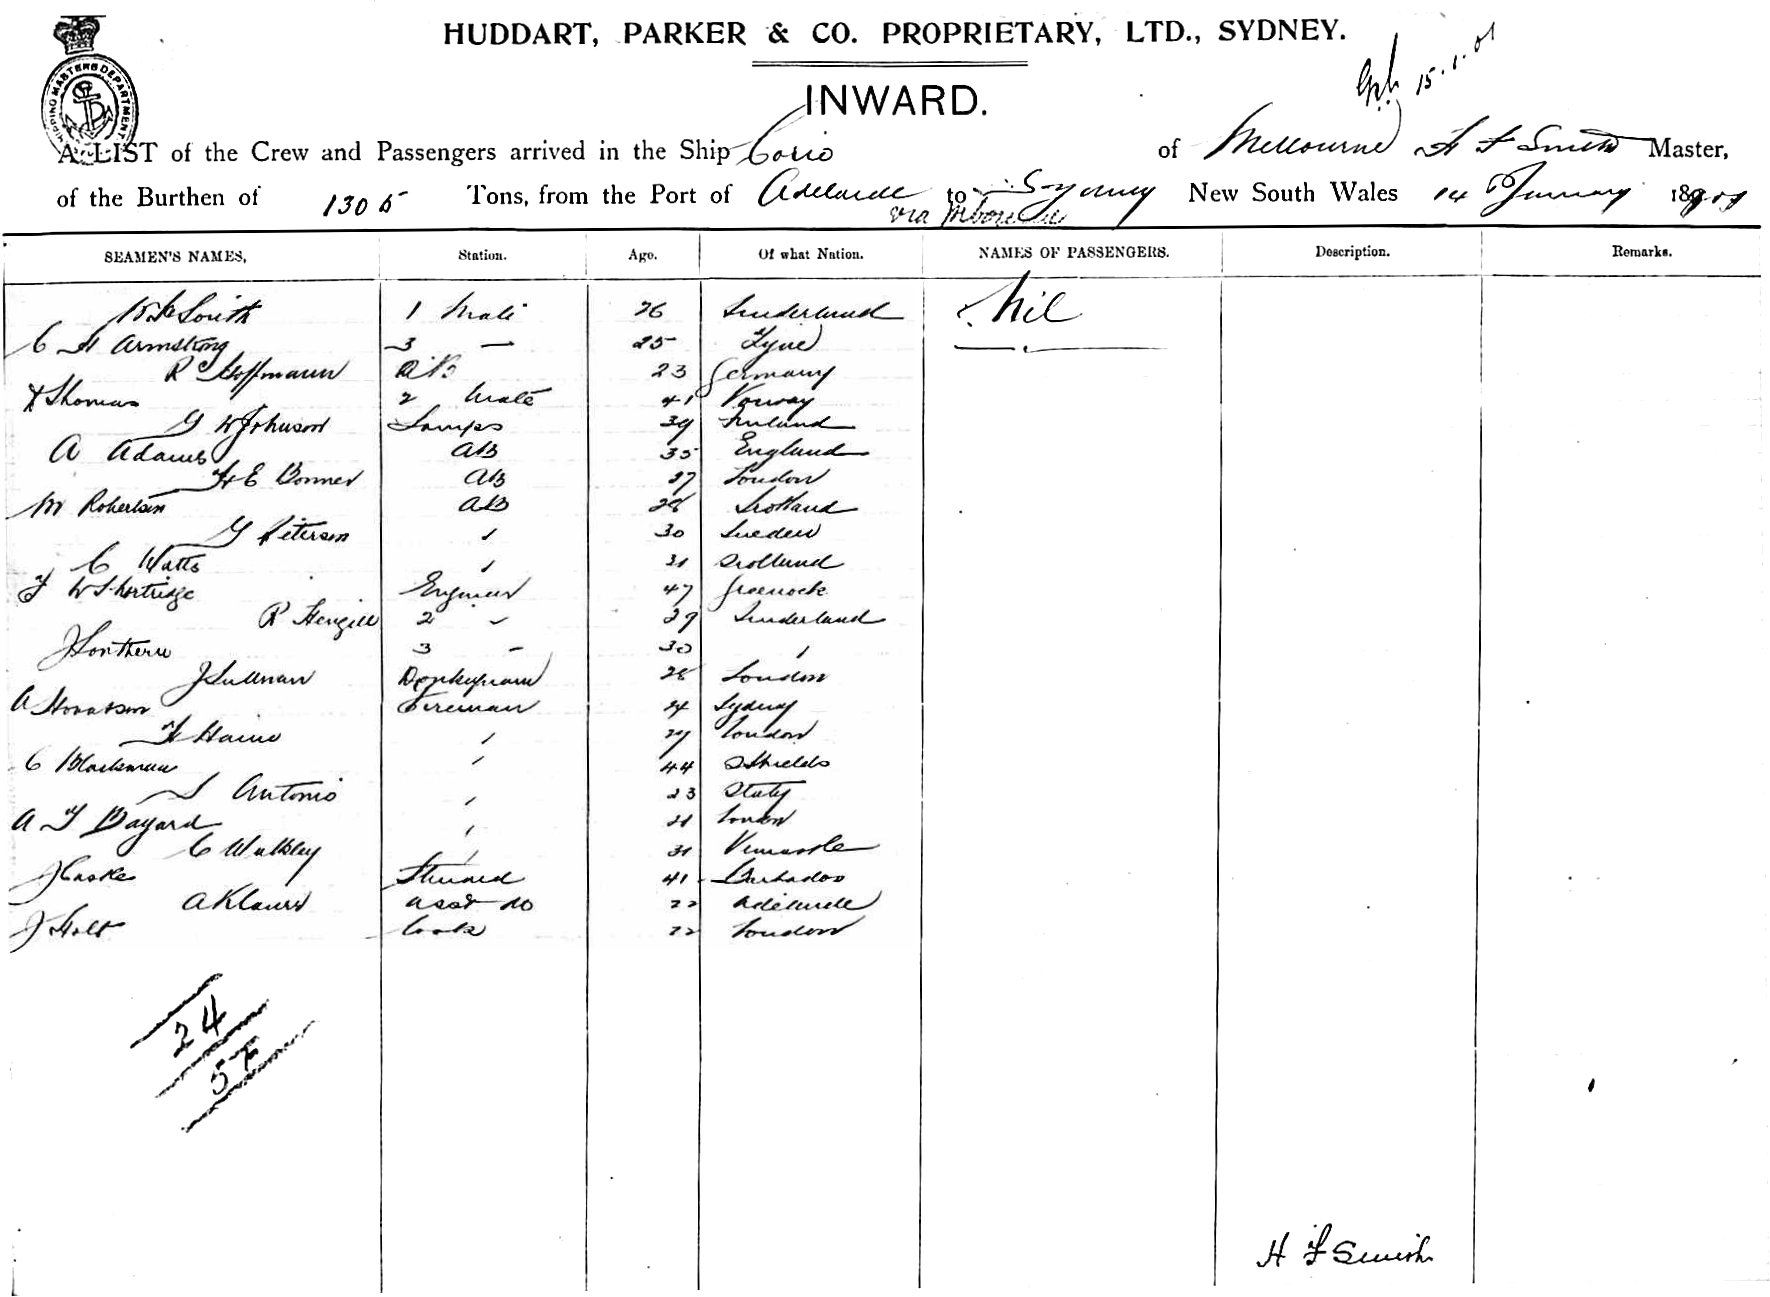 HUDDART, PARKER & CO. PROPRIETARY, LTD., SYDNEY.
15.1.01
INWARD.
SHIPPING MASTERS DEPARTMENT
A LIST of the Crew and Passengers arrived in the Ship Corio of Melbourne H F Smith Master,
of the Burthen of 1305 Tons, from the Port of Adelaide to Sydney New South Wales 14 January 1901
via
SEAMEN'S NAMES, Station. Age. Of what Nation. NAMES OF PASSENGERS. Description. Remarks.
1 Mate 26 Sunderland Nil
C H Armstrong 3 — 25 Tyne
R Hoffmann AB 23 Germany
Thomas 2 Mate 41 Norway
G W Johnson Lamps 39 Finland
A Adams AB 35 England
H E Bonner AB 27 London
M Robertson AB 28 Scotland
G Peterson 30 Sweden
C Watts 31 Scotland
W Shortridge Engineer 47 Greenock
R 2 29 Sunderland
J Southern 3 30
J Sullivan Donkeyman 28 London
A Fireman Sydney
H London
C Blackman 44 Shields
Antonio 23 Italy
A Bayard London
C Walkley 31 Newcastle
J Steward 41 Barbados
A asst do 22 Adelaide
J Holt Cook 22 London
24
H F Smith